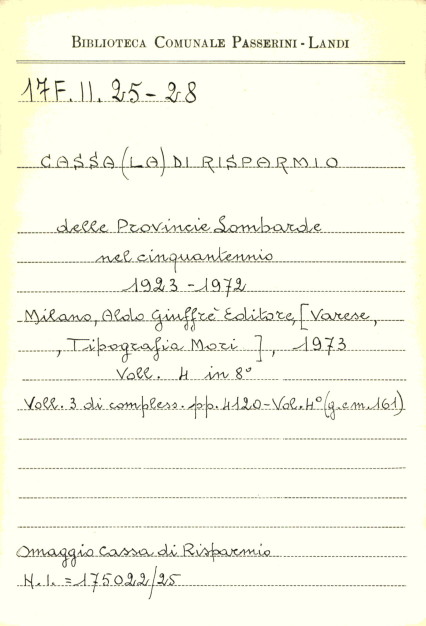 BIBLIOTECA COMUNALE PASSERINI - LANDI
17F. II. 25-28
CASSA (LA) DI RISPARMIO
delle Provincie Lombarde
nel cinquantennio
1923 - 1972
Milano, Aldo Giuffrè Editore, [Varese,
, Tipografia Mori ], 1973
Voll. 4 in 8°
Voll. 3 di compless. pp. 4120 - Vol. 4° (g.cm.161)
Omaggio Cassa di Risparmio
N.I. = 175022/25